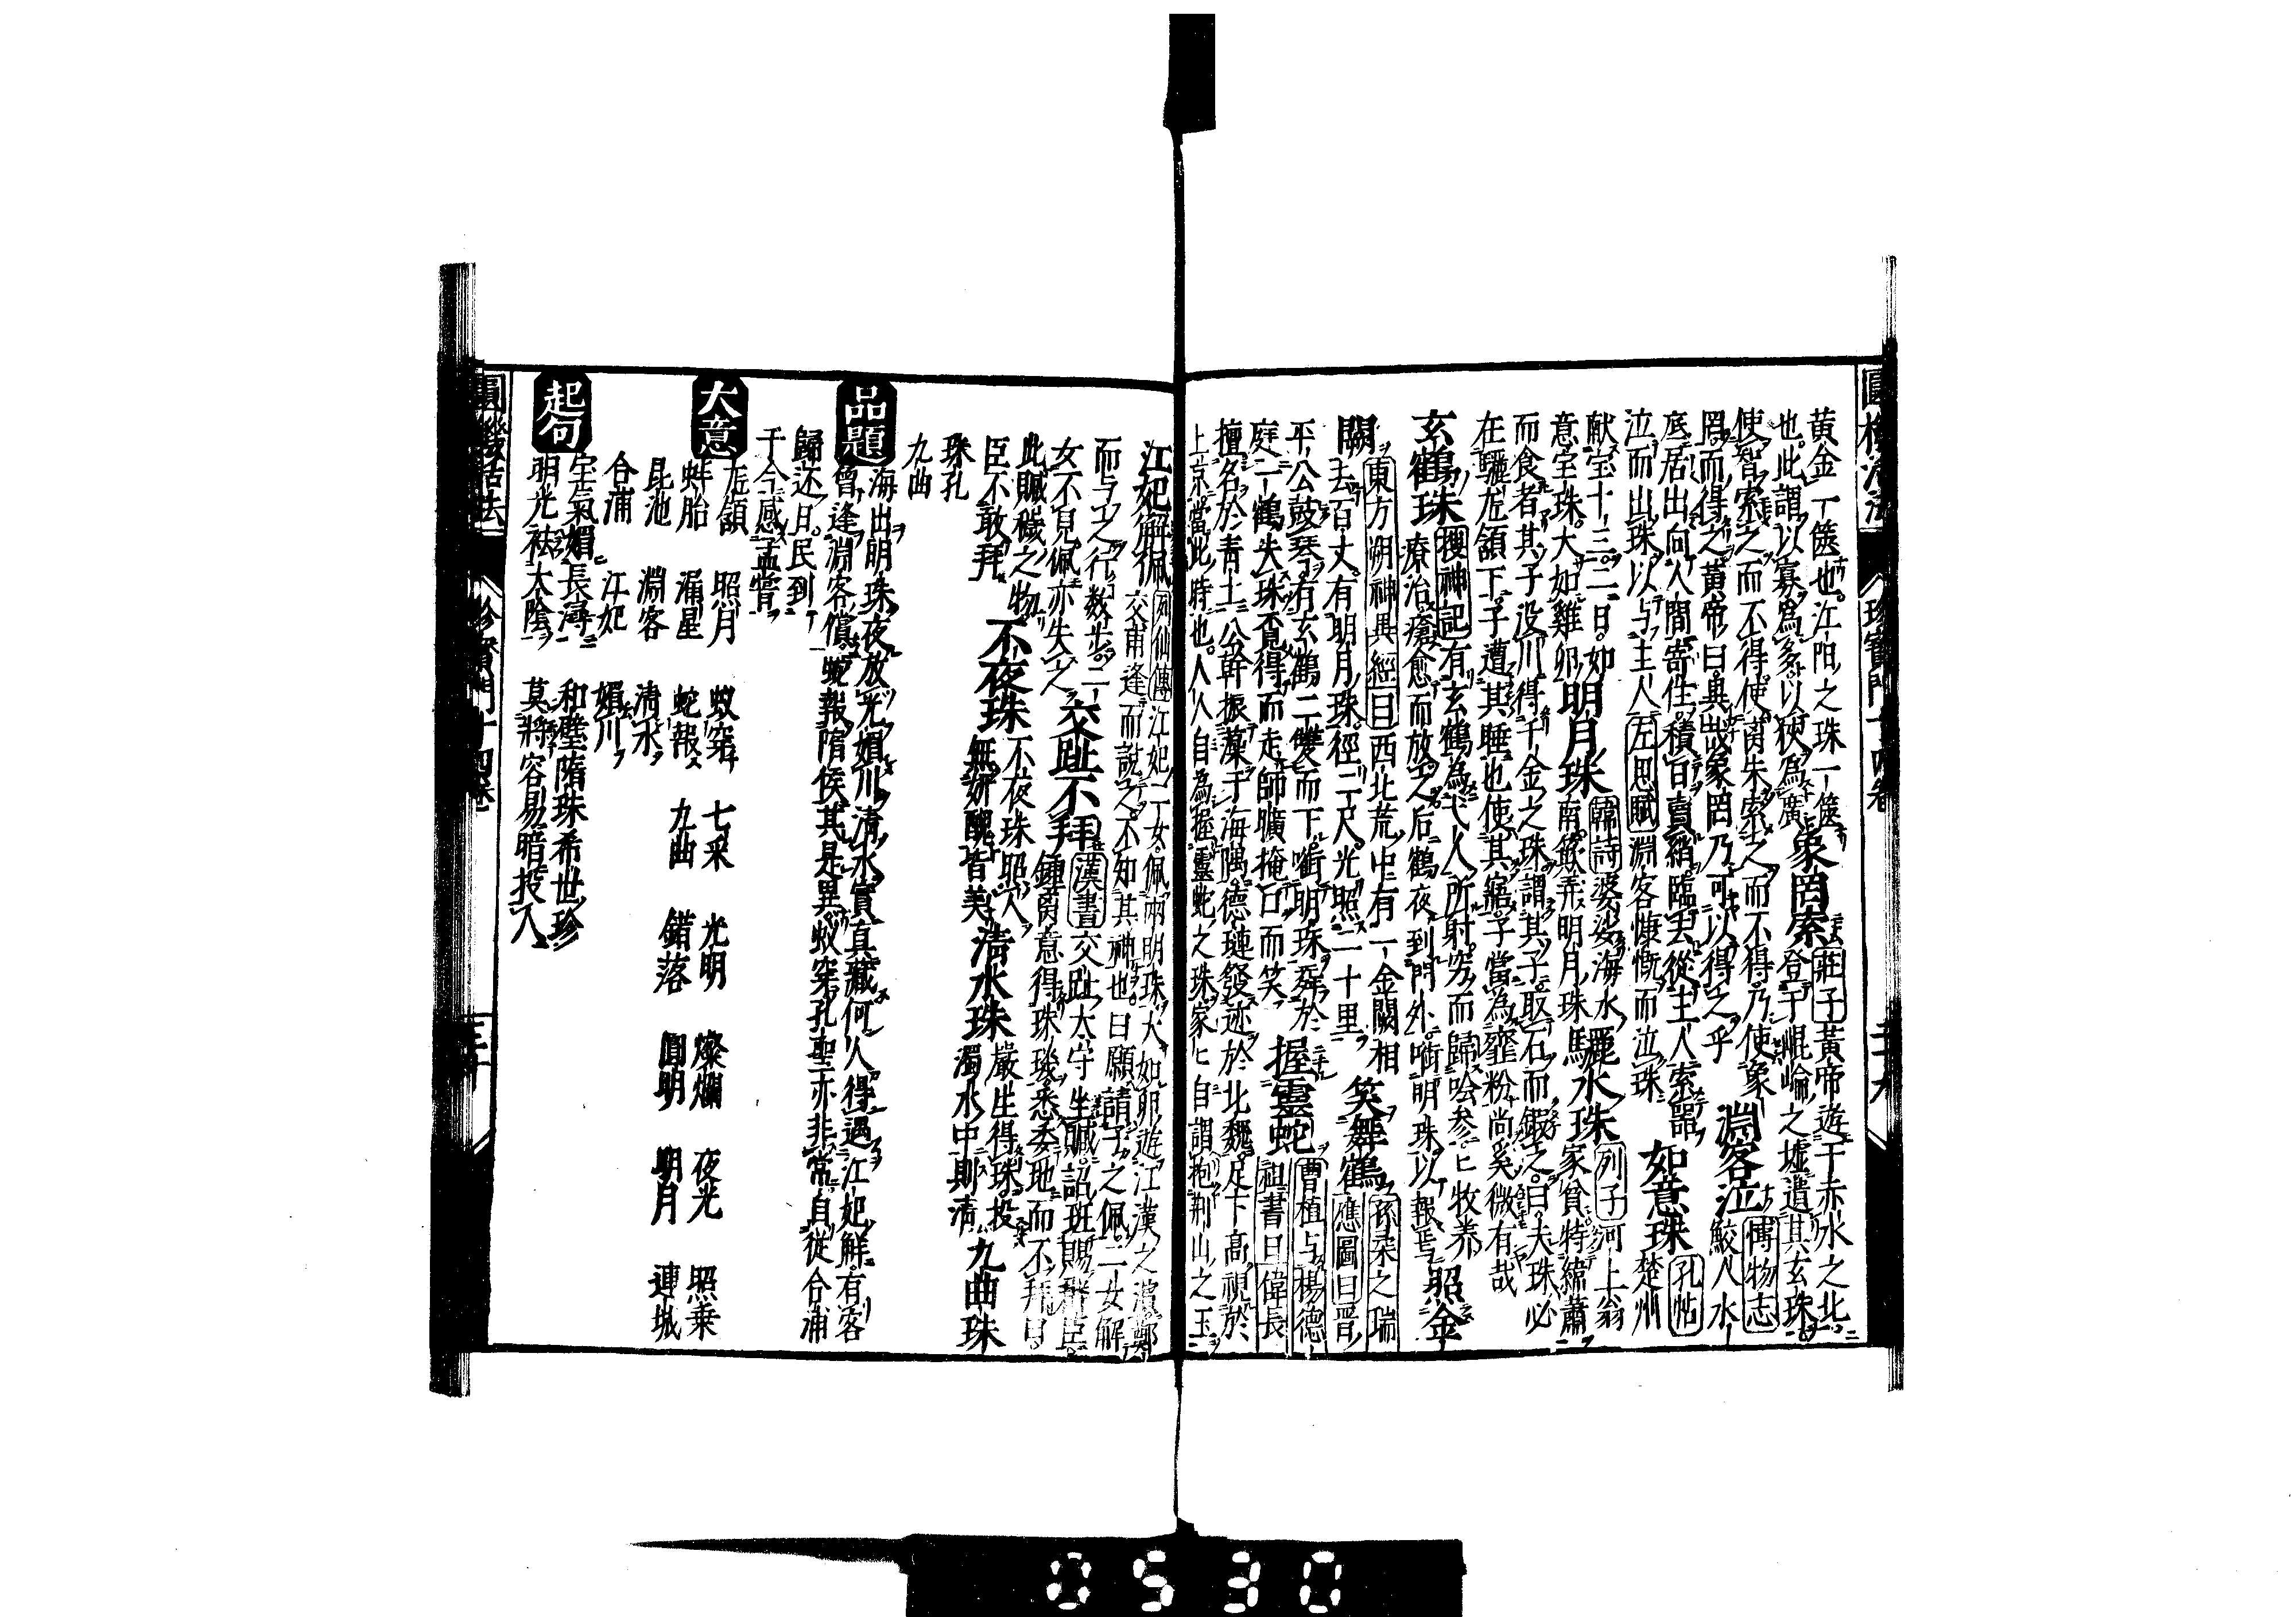 圓機活法 珍寶門十四卷 二十九
黃金一篋也江阳之珠一篋
也此謂以寡爲多以狹爲廣 象罔索 莊子 黃帝遊于赤水之北
登于崐崘之墟遺其玄珠
使智索之而不得使
朱索之而不得乃使象
罔而得之黃帝曰異哉象罔乃可以得之乎 淵客泣 博物志 鮫人水
底居出向人間寄住積日賣綃臨去從主人索器
泣而出珠以与主人 左思賦 淵客慷慨而泣珠 如意珠 孔帖 楚州
献宝十三二曰如
意宝珠大如雞卵 明月珠 韓詩 婆娑海水
南歛弄明月珠 驪水珠 列子 河上翁
家貧特緯蕭
而食者其子没川得千金之珠謂其子取石而鍜之曰夫珠必
在驪龙頷下子遭其睡也使其寤子當為虀粉尚奚微有哉
玄鶴珠 搜神記 有玄鶴為弋人所射穷而歸哙参ヒ牧养
療治瘡愈而放之后鶴夜到門外啣明珠以報焉 照金
闕 東方朔神異經曰 西北荒中有一金闕相
去百丈有明月珠徑三尺光照二十里 笑舞鶴 孫柔之瑞
應圖曰 晋
平公鼓琴有玄鶴二雙而下啣明珠舞於
庭一鶴失珠覓得而走師曠掩口而笑 握灵蛇 曹植与楊德
祖書曰 偉長
擅名於青土公幹振藻于海隅德璉發迹於北魏足下高視於
上京當此時也人人自為握靈蛇之珠家ヒ自謂抱荆山之玉
江妃解佩 列仙傳 江妃二女佩兩明珠大如卵遊江漢之濱鄭
交甫逢而說之不知其神也曰願請子之佩二女解
而与之行数步二
女不見佩亦失之 交趾不拜 漢書 交趾太守坐贓詔班賜群臣
鍾离意得珠璣悉委地而不拜曰
此贓穢之物
臣不敢拜 不夜珠 不夜珠照人
無妍醜皆美 清水珠 嚴生得珠投
濁水中則清 九曲珠
珠孔
九曲
品題 海出明珠夜放光媚川清水實真藏何人得遇江妃解有客
曾逢淵客償蛇報隋侯其是異蚁穿孔聖亦非常自從合浦
歸还日民到
于今感孟嘗
大意 龙頷 照月 蚁穿 七采 光明 燦爛 夜光 照乗
蚌胎 漏星 蛇報 九曲 錯落 圓明 明月 連城
昆池 淵客 清水
合浦 江妃 媚川
起句 宝氣媚長潯 和璧隋珠希世珍
明光祛太陰 莫將容易暗投人
圓機活法 珍寶門十四卷 三十
0530